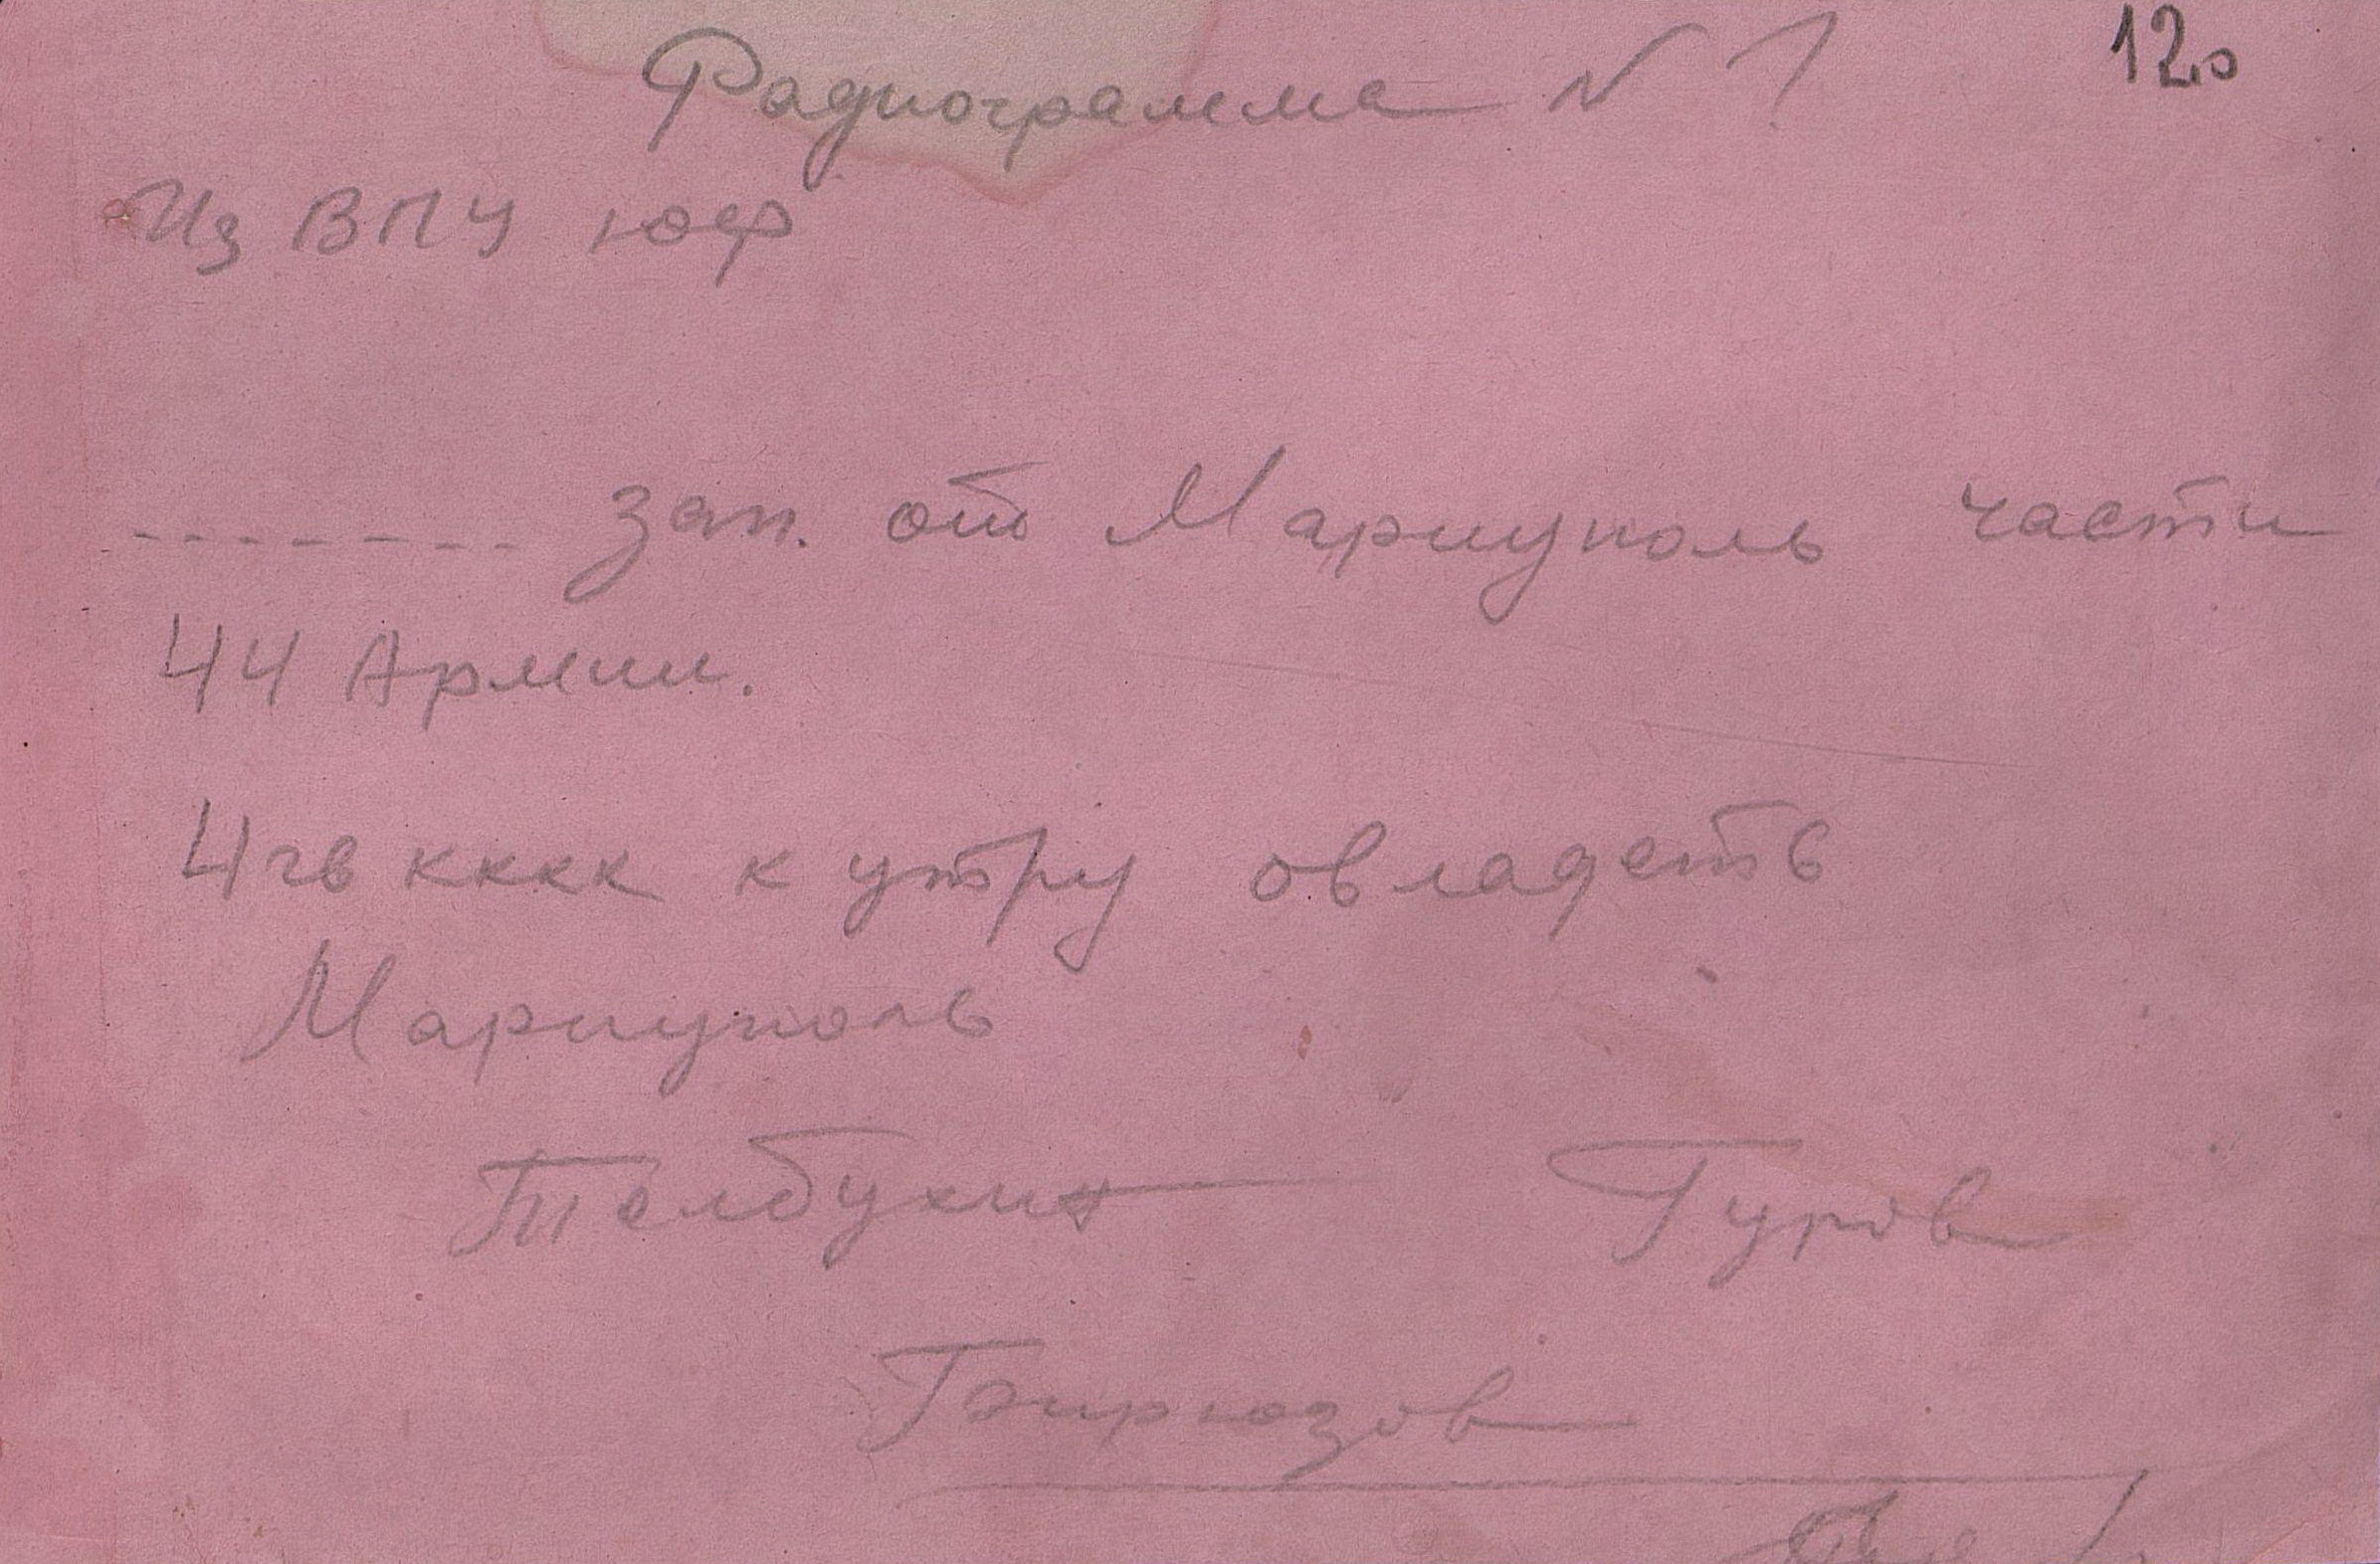 Радиограмма N 1
120
Из ВПУ ЮФ
-------- зап. от Мариуполь части
44 Армии.
4 гв кккк к утру овладеть
Мариуполь
Толбухин Гуров
Бирюзов